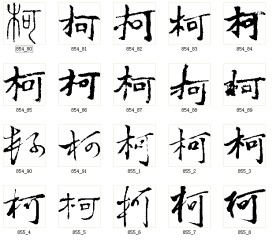 柯 柯 柯 柯 柯
854_80 854_81 854_82 854_83 854_84
柯 柯 柯 柯 柯
854_85 854_86 854_87 854_88 854_89
柯 柯 柯 柯
854_90 854_91 855_1 855_2 855_3
柯 柯 柯 柯 柯
855_4 855_5 855_6 855_7 855_8